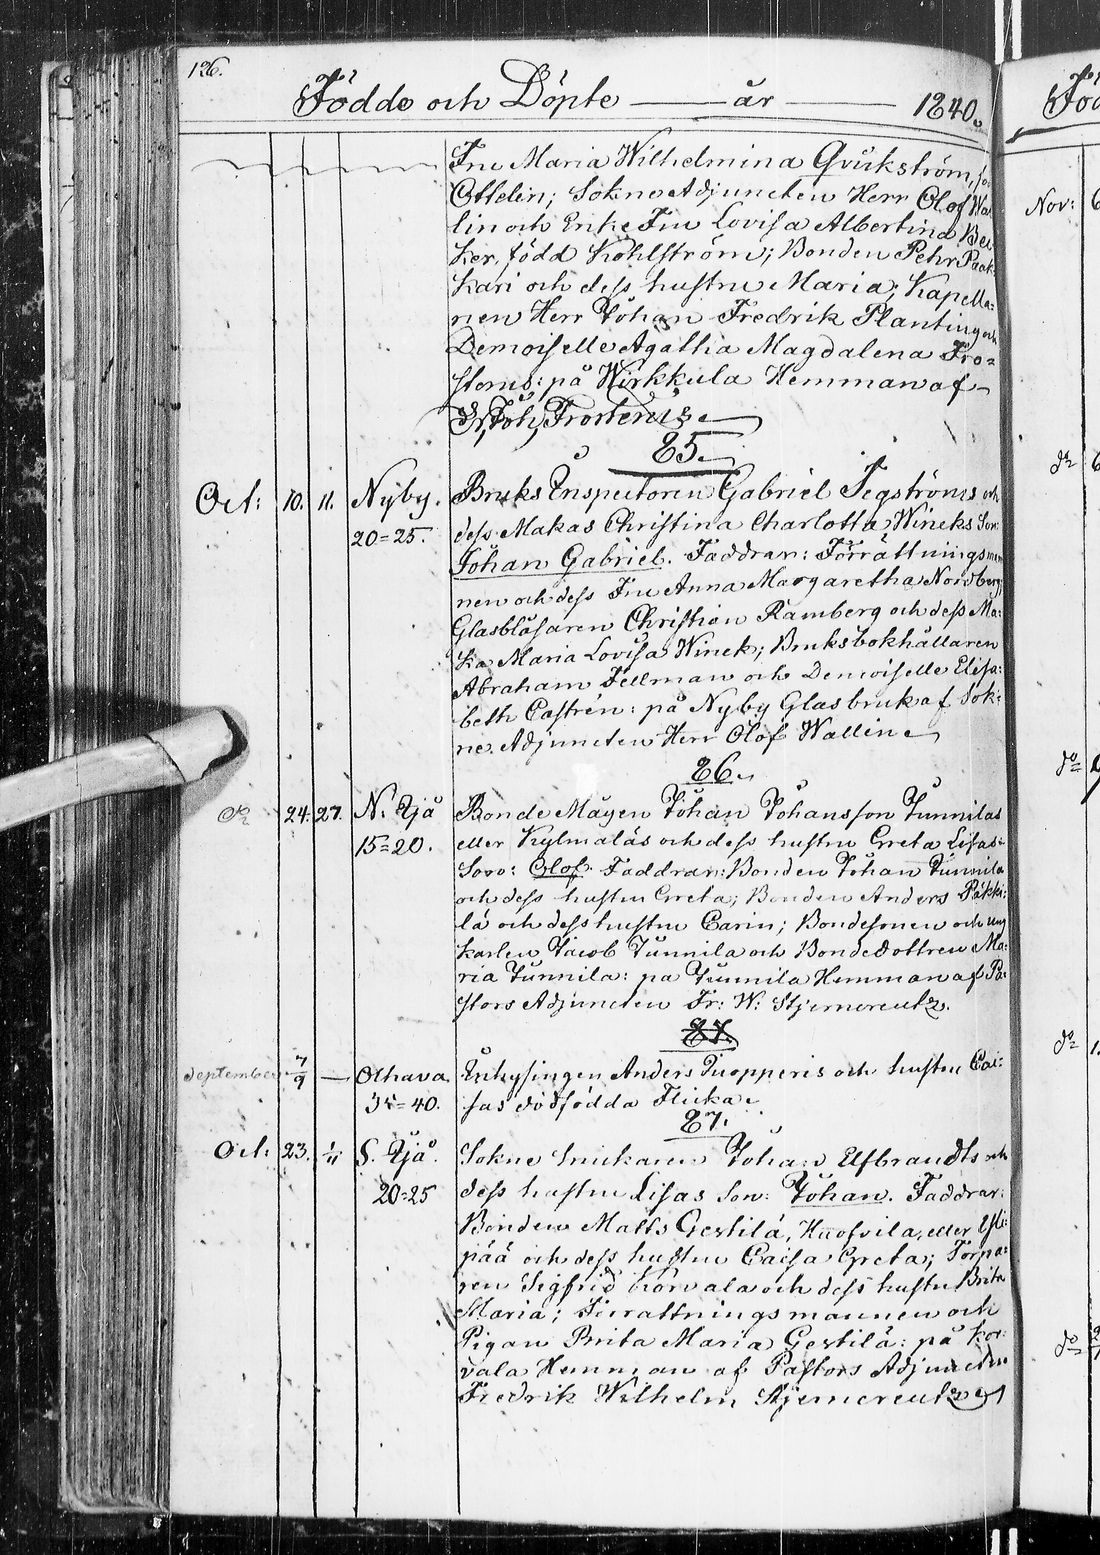 126.
Födde och Döpte — år — 1840.
Fru Maria Wilhelmina Qvickström,
Ottelin; Sokne Adjuncten Herr Olof Wal
lin och Enke Fru Lovisa Albertina Bec
ker, född Kohlström; Bonden Pehr Paak
kari och dess hustru Maria; Kapella-
nen Herr Johan Fredrik Planting och
Demoiselle Agatha Magdalena Fro-
sterus: på Wirkkula Hemman af
Joh: Frosterus.
85.
Oct: 10. 11. Nyby. Bruks Inspectoren Gabriel Tegströms och
20=25. dess Makas Christina Charlotta Wineks Son:
Johan Gabriel. Faddrar: Förrättningsman
nen och dess Fru Anna Margaretha Nordberg,
Glasblåsaren Christian Ramberg och dess Ma-
ka Maria Lovisa Winek; Bruksbokhållaren
Abraham Fellman och Demoiselle Elisa-
beth Castrén: på Nyby Glasbruk af Sok-
ne Adjuncten Herr Olof Wallin.
86.
do 24. 27. N. Ijå Bonde Mågen Johan Johansson Junnilas
15=20. eller Kylmäläs och dess hustru Greta Lisas
Son: Olof. Faddrar: Bonden Johan Junnila
och dess hustru Greta; Bonden Anders Päkki-
lä och dess hustru Carin; Bondesonen och ung
karlen Jacob Junnila och Bondedottren Ma-
ria Junnila: på Junnila Hemman af Pa-
stors Adjuncten Fr: W: Stjerncreutz.
87.
September 7/9 — Olhava Inhysingen Anders Puopperis och hustru Cai-
35=40. sas dödfödda Flicka.
87.
Oct: 23. 1/11 S. Ijå. Sokne Snickaren Johan Elfbrandts och
20=25 dess hustru Lisas Son: Johan. Faddrar:
Bonden Matts Gestilä, Huofvila, eller Yli-
pää och dess hustru Caisa Greta; Torpa-
ren Sigfrid Korvala och dess hustru Brita
Maria; Förrättningsmannen och
Pigan Brita Maria Gestilä: på Kor-
vala Hemman af Pastors Adjuncten
Fredrik Wilhelm Stjerncreutz.
Föd
Nov: 6
do 6
do
do 1.
do